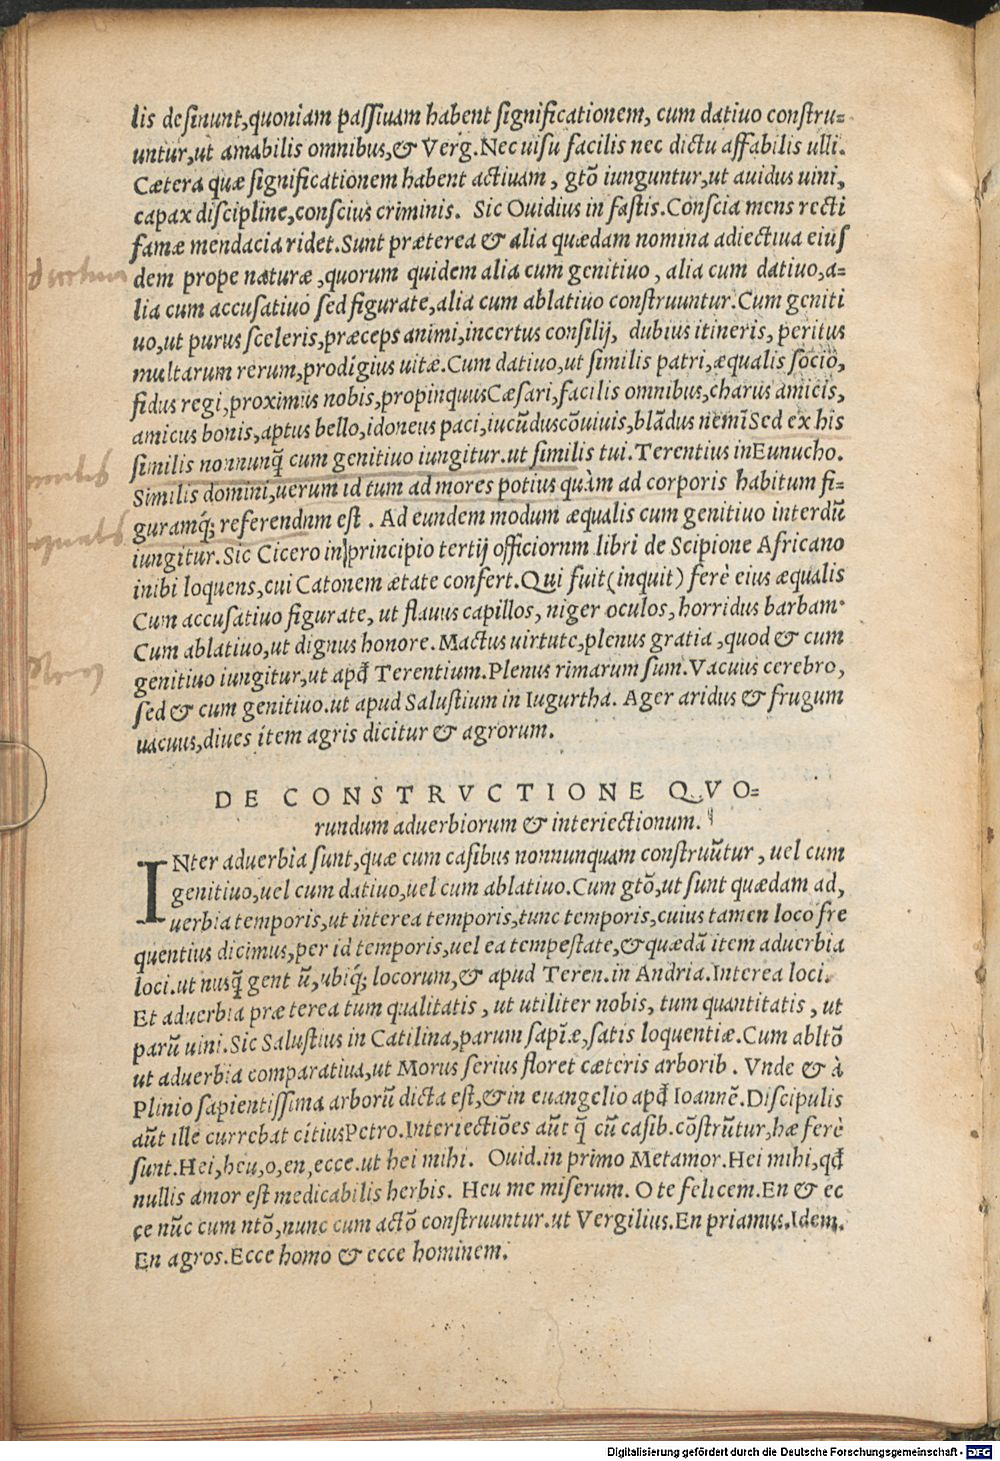 lis desinunt,quoniam passiuam habent significationem, cum datiuo constru=
untur,ut amabilis omnibus,& Verg.Nec uisu facilis nec dictu affabilis ulli.
Cætera quæ significationem habent actiuam, gtō iunguntur,ut auidus uini,
capax discipline,conscius criminis. Sic Ouidius in fastis.Conscia mens recti
famæ mendacia ridet.Sunt præterea & alia quædam nomina adiectiua eius
dem prope naturæ,quorum quidem alia cum genitiuo, alia cum datiuo,a=
lia cum accusatiuo sed figurate,alia cum ablatiuo construuntur.Cum geniti
uo,ut purus sceleris,præceps animi,incertus consilij, dubius itineris, peritus
multarum rerum,prodigius uitæ.Cum datiuo,ut similis patri,æqualis socio,
fidus regi,proximus nobis,propinquusCæsari,facilis omnibus,charus amicis,
amicus bonis,aptus bello,idoneus paci,iucūduscōuiuis,blādus nemīSed ex his
similis nonnunq̄ cum genitiuo iungitur.ut similis tui.Terentius inEunucho.
Similis domini,uerum id tum ad mores potius quàm ad corporis habitum fi=
guramq́; referendnm est . Ad eundem modum æqualis cum genitiuo interdū
iungitur.Sic Cicero in principio tertij officiornm libri de Scipione Africano
inibi loquens,cui Catonem ætate confert.Qui fuit(inquit) ferè eius æqualis
Cum accusatiuo figurate, ut flauus capillos, niger oculos, horridus barbam.
Cum ablatiuo,ut dignus honore.Mactus uirtute,plenus gratia,quod & cum
genitiuo iungitur,ut apd̄ Terentium.Plenus rimarum sum.Vacuus cerebro,
sed & cum genitiuo.ut apud Salustium in Iugurtha. Ager aridus & frugum
uacuus,diues item agris dicitur & agrorum.
DE CONSTRVCTIONE QVO=
rundum aduerbiorum & interiectionum.
INter aduerbia sunt,quæ cum casibus nonnunquam construūtur, uel cum
genitiuo,uel cum datiuo,uel cum ablatiuo.Cum gtō,ut sunt quædam ad,
uerbia temporis,ut interea temporis,tunc temporis,cuius tamen loco fre
quentius dicimus,per id temporis,uel ea tempestate,& quædā item aduerbia
loci.ut nusq̄ gent ū,ubiq́; locorum,& apud Teren.in Andria.Interea loci.
Et aduerbia præ terea tum qualitatis, ut utiliter nobis, tum quantitatis, ut
parū uini.Sic Salustius in Catilina,parum sapīæ,satis loquentiæ.Cum abltō
ut aduerbia comparatiua,ut Morus serius floret cæteris arborib. Vnde & à
Plinio sapientissima arborū dicta est,& in euangelio apd̄ Ioannē.Discipulis
aūt ille currebat citiusPetro.Interiectiōes aūt q̄ cū casib.cōstrūtur,hæ ferè
sunt.Hei,heu,o,en,ecce.ut hei mihi. Ouid.in primo Metamor.Hei mihi,qd̄
nullis amor est medicabilis herbis. Heu me miserum. O te felicem.En & ec
ce nūc cum ntō,nunc cum actō construuntur.ut Vergilius.En priamus.Idem.
En agros.Ecce homo & ecce hominem.
Digitalisierung gefördert durch die Deutsche Forschungsgemeinschaft - DFG